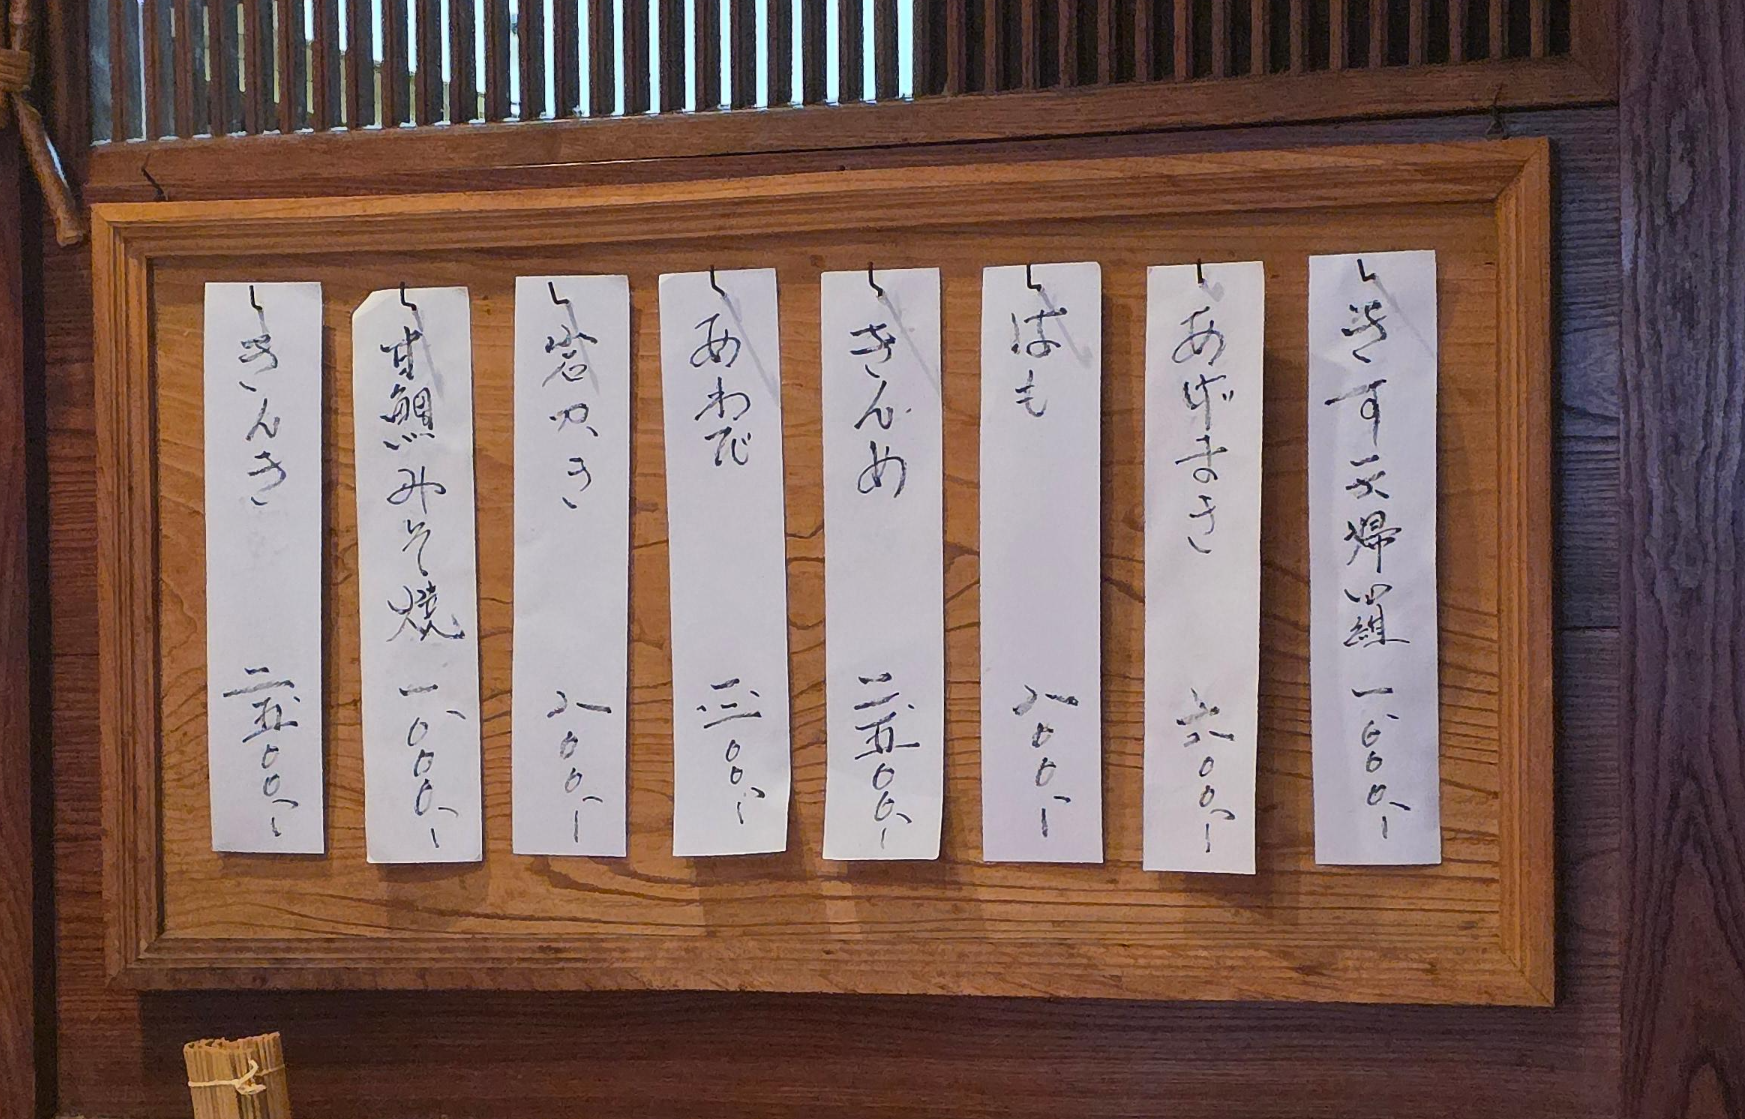 きす天婦羅 一、〇〇〇、ー
あげまき 六〇〇、ー
はも 八〇〇、ー
きんめ 二、五〇〇、ー
あわび
岩かき 八〇〇、ー
甘鯛みそ焼 一、〇〇〇、ー
きんき 二、五〇〇、ー